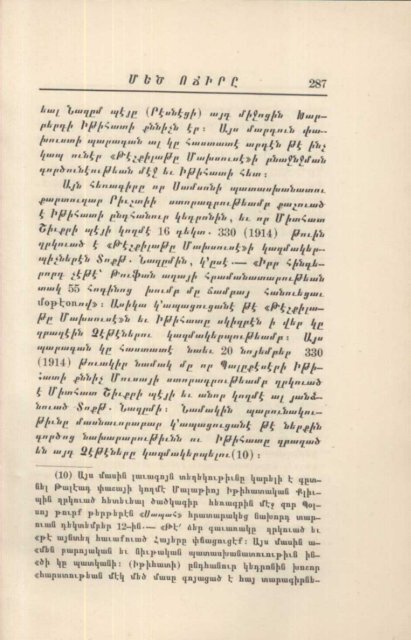 ՄԵԾ ՈՃԻՐԸ 287
եալ Նազըմ պէյը (Րէսնէցի) այդ միջոցին Խար-
բերդի Իթիհատի քննիչն էր։ Այս մարդուն փա-
խուստի պարագան ալ կը հաստատէ արդէն թէ ինչ
կապ ունէր «Թէշքիլաթը Մախսուսէ»ի բնաջնջման
գործունէութեան մէջ եւ Իթիհատի հետ։
Այն հեռագիրը որ Սամսոնի պատասխանատու
քարտուղար Րիւշտիի ստորագրութեամբ քաշուած
է Իթիհատի ընդհանուր կեդրոնին, եւ որ Միտհատ
Շիւքրի պէյի կողմէ 16 դեկտ. 330 (1914) թուին
ղրկուած է «Թէշքիլաթը Մախսուսէ»ի կազմակեր-
պիչներէն Տոքթ. Նազըմին, կ՚ըսէ.— «Իբր հինգե-
րորդ չէթէ՝ Թուֆան աղայի հրամանատարութեան
տակ 55 հոգինոց խումբ մը ճամբայ հանուեցաւ
մօթէօռով»։ Ասիկա կ՚ապացուցանէ թէ «Թէշքիլա-
թը Մախսուսէ»ն եւ Իթիհատը սկիզբէն ի վեր կը
զբաղէին Չէթէներու կազմակերպութեամբ։ Այս
պարագան կը հաստատէ նաեւ 20 նոյեմբեր 330
(1914) թուակիր նամակ մը որ Պալըքէսէրի Իթի-
հատի քննիչ Մուսայի ստորագրութեամբ ղրկուած
է Միտհատ Շիւքրի պէյի եւ անոր կողմէ ալ յանձ-
նուած Տոքթ. Նազըմի։ Նամակին պարունակու-
թիւնը մասնաւորաբար կ՚ապացուցանէ թէ ներքին
գործոց նախարարութիւնն ու Իթիհատը զբաղած
են այդ Չէթէները կազմակերպելու(10)։
(10) Այս մասին լաւագոյն տեղեկութիւնը կարելի է գըտ-
նել Թալէադ փաշայի կողմէ Մալաթիոյ Իթիհատական Քլիւ-
պին ղրկուած հետեւեալ ծածկագիր հեռագրին մէջ զոր Պոլ-
սոյ թուրք թերթերէն «Սապահ» հրատարակեց նախորդ տար-
ուան դեկտեմբեր 12-ին.— «Թէ՛ ձեր գաւառակը ղրկուած եւ
թէ այնտեղ հաւաքուած Հայերը փնացուցէք։ Այս մասին ա-
մէն բարոյական եւ նիւթական պատասխանատուութիւն ին-
ծի կը պատկանի։ (Իթիհատի) ընդհանուր կեդրոնին խոշոր
ծախուց մէկ մեծ մասը գոյացած է հայ տարագիրնե-